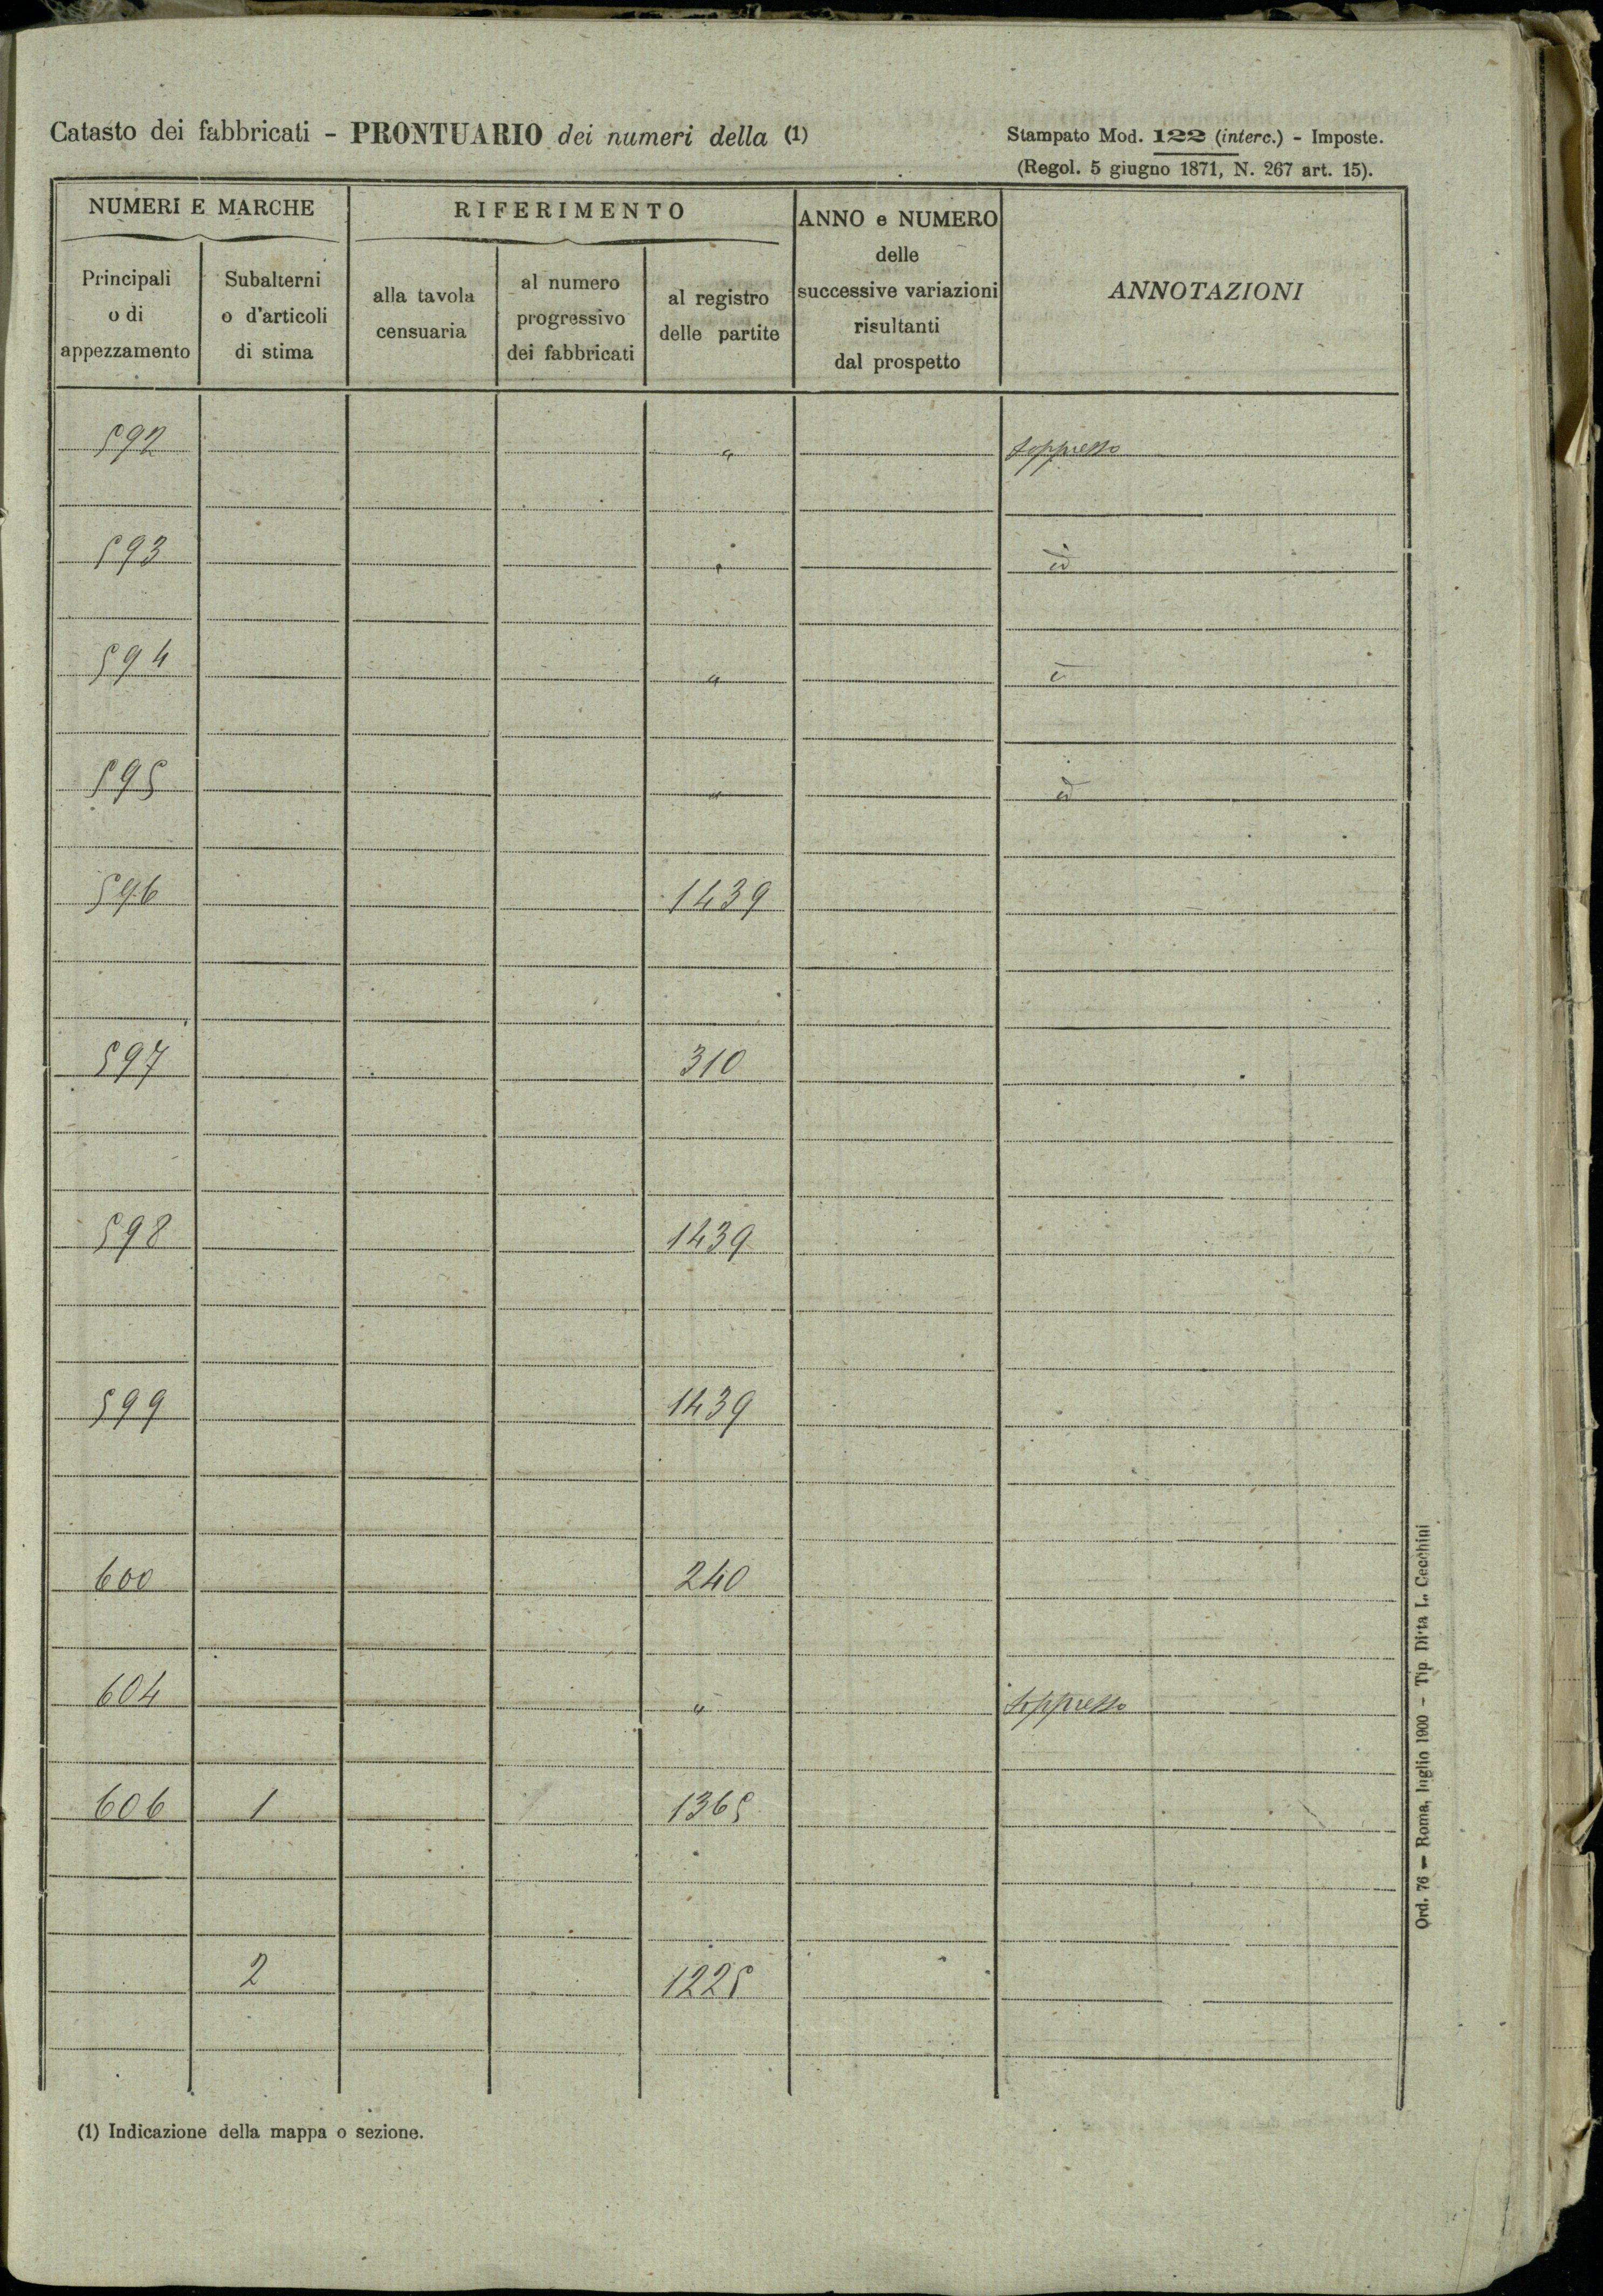 Catasto dei fabbricati - PRONTUARIO dei numeri della (1)
Stampato Mod. 122 (interc.) - Imposte.
(Regol. 5 giugno 1871, N. 267 art. 15).
NUMERI E MARCHE
RIFERIMENTO
ANNO e NUMERO
delle
successive variazioni
risultanti
dal prospetto
ANNOTAZIONI
Principali
o di
appezzamento
Subalterni
o d'articoli
di stima
alla tavola
censuaria
al numero
progressivo
dei fabbricati
al registro
delle partite
592 " soppresso
593 " id
594 " id
595 " id
596 1439
597 310
598 1439
599 1439
600 240
604 " soppresso
606 1 1365
2 1225
(1) Indicazione della mappa o sezione.
Ord. 76 - Roma, luglio 1900 - Tip Ditta L. Cecchini